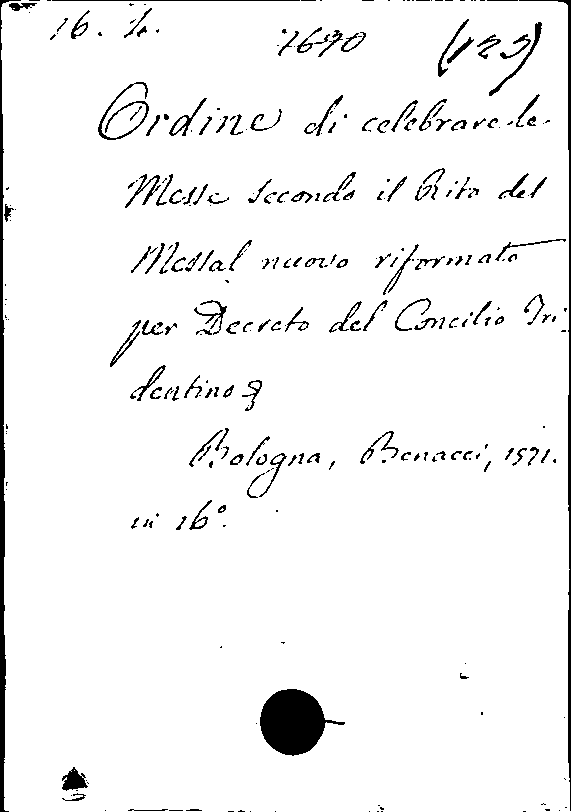 16. L. 7690 (123)
Ordine di celebrare le
Messe secondo il Rito del
Messal nuovo riformato
per Decreto del Concilio Tri
dentino
Bologna, Benacci, 1571.
in 16°.